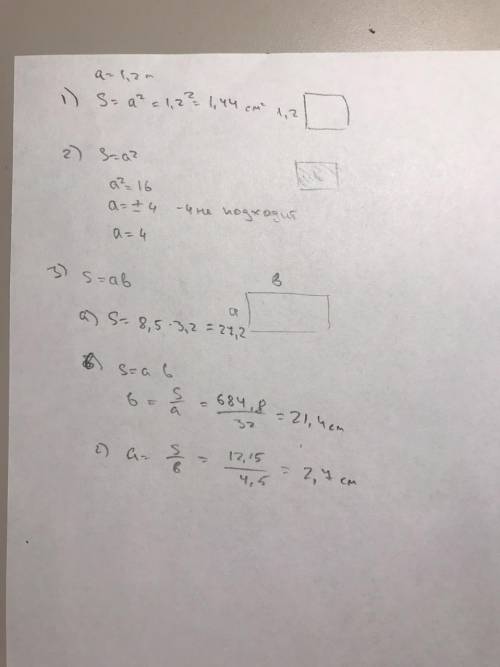 a = 1,2
1) S = a² = 1,2² = 1,44 см² 1,2
2) S = a²
a² = 16
a = ± 4 -4 не подходит
a = 4
3) S = ab
в
a
а) S = 8,5 · 3,2 = 27,2
S = a b
b = S/a = 684,8/32 = 21,4 см
г) a = S/b = 12,15/4,5 = 2,7 см